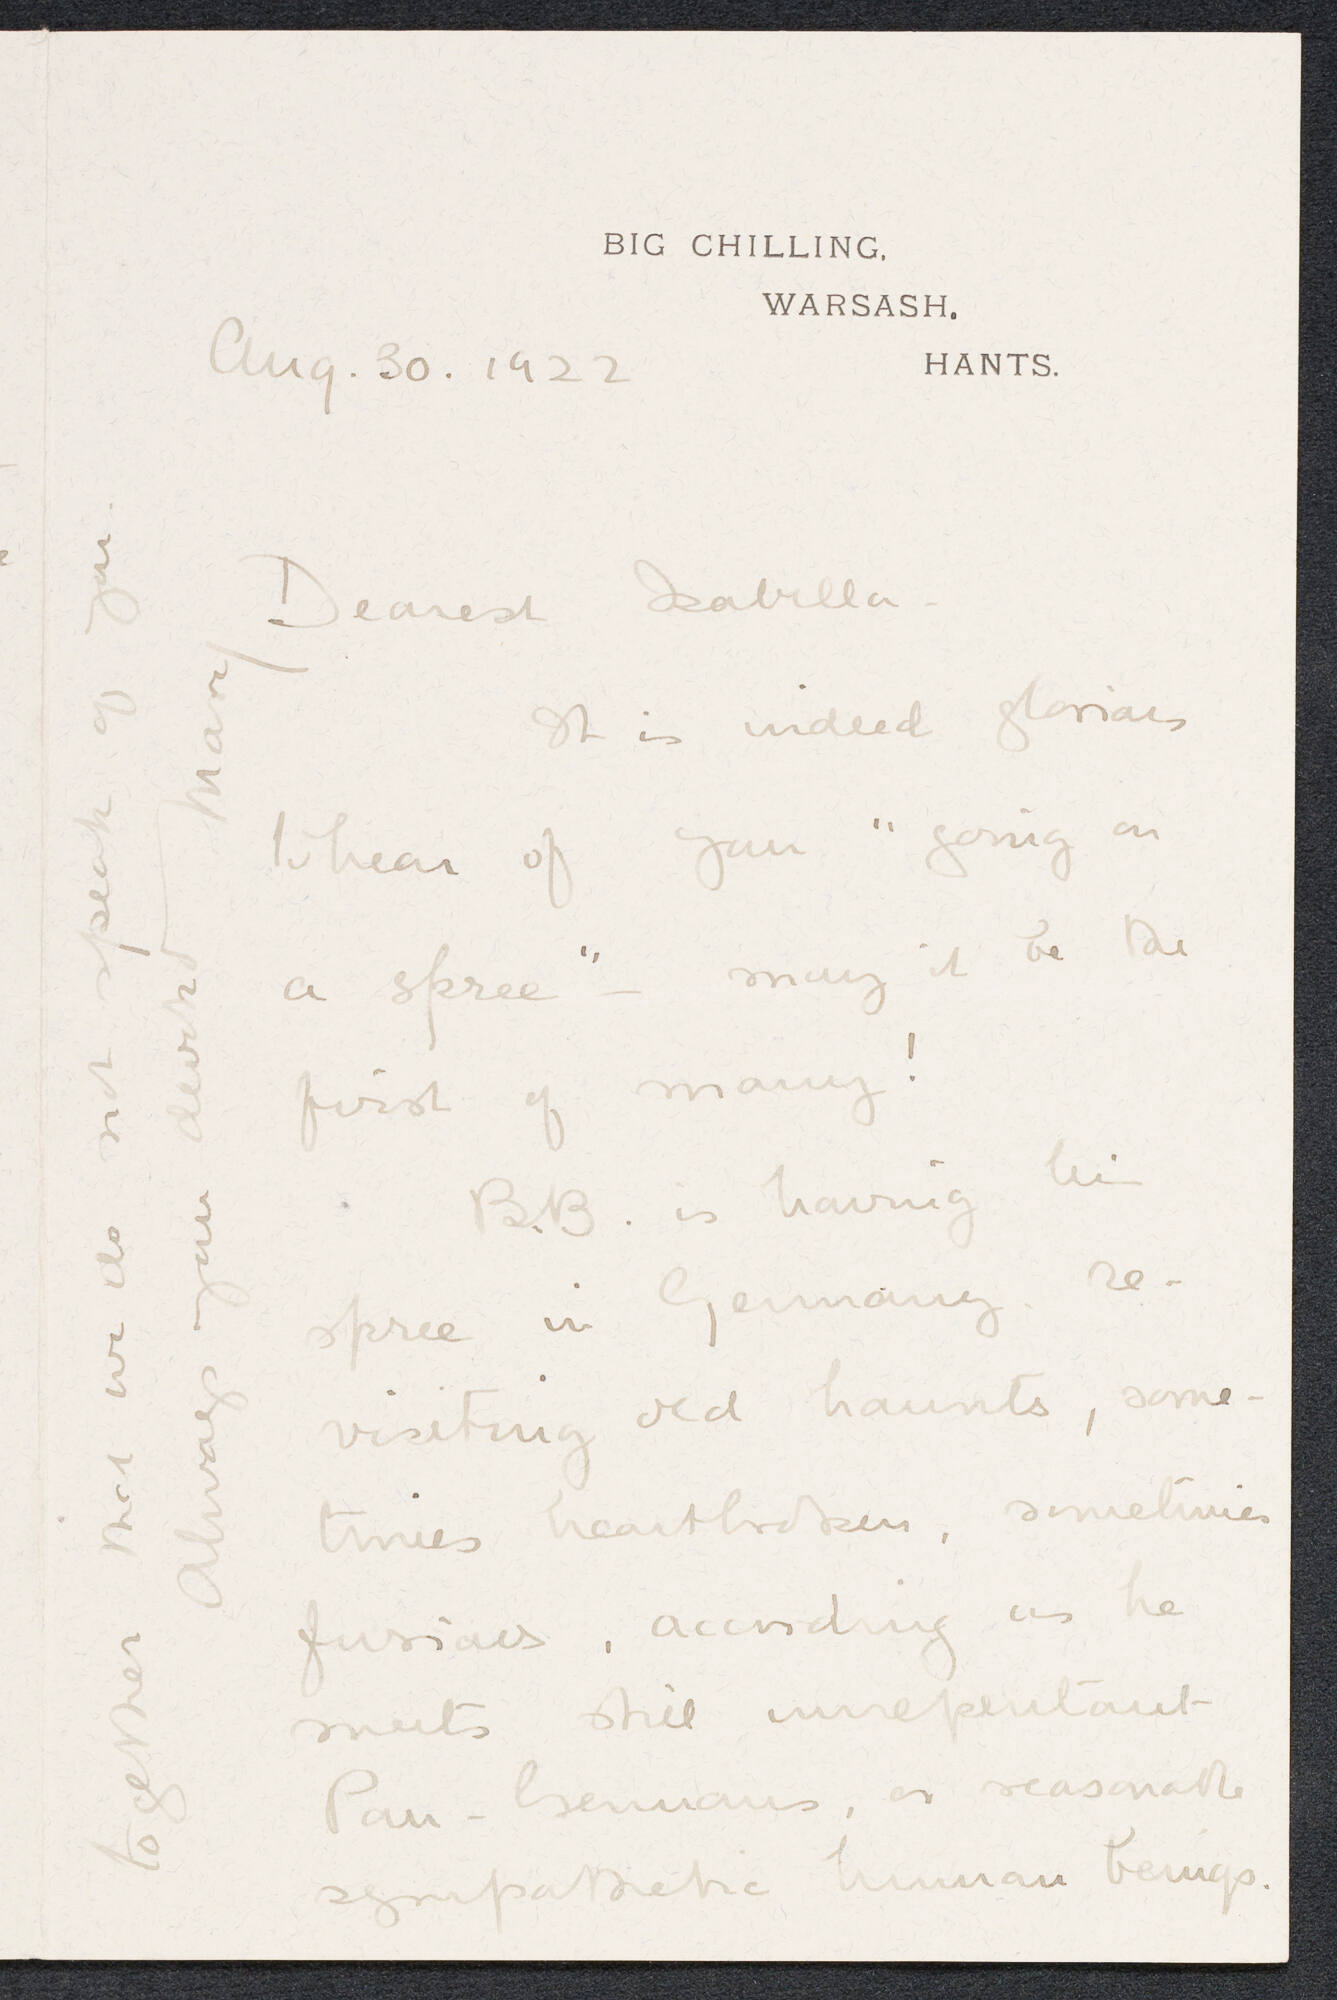 BIG CHILLING,
WARSASH.
HANTS.
Aug. 30. 1922
Dearest Isabella -
It is indeed glorious
to hear of you "going on
a spree" - may it be the
first of many!
B.B. is having his
spree in Germany, re-
visiting old haunts, some-
times heartbroken, sometimes
furious, according as he
meets still unrepentant
Pan-Germans, or reasonable
sympathetic human beings.
together that we do not speak of you.
Always your devoted Mary